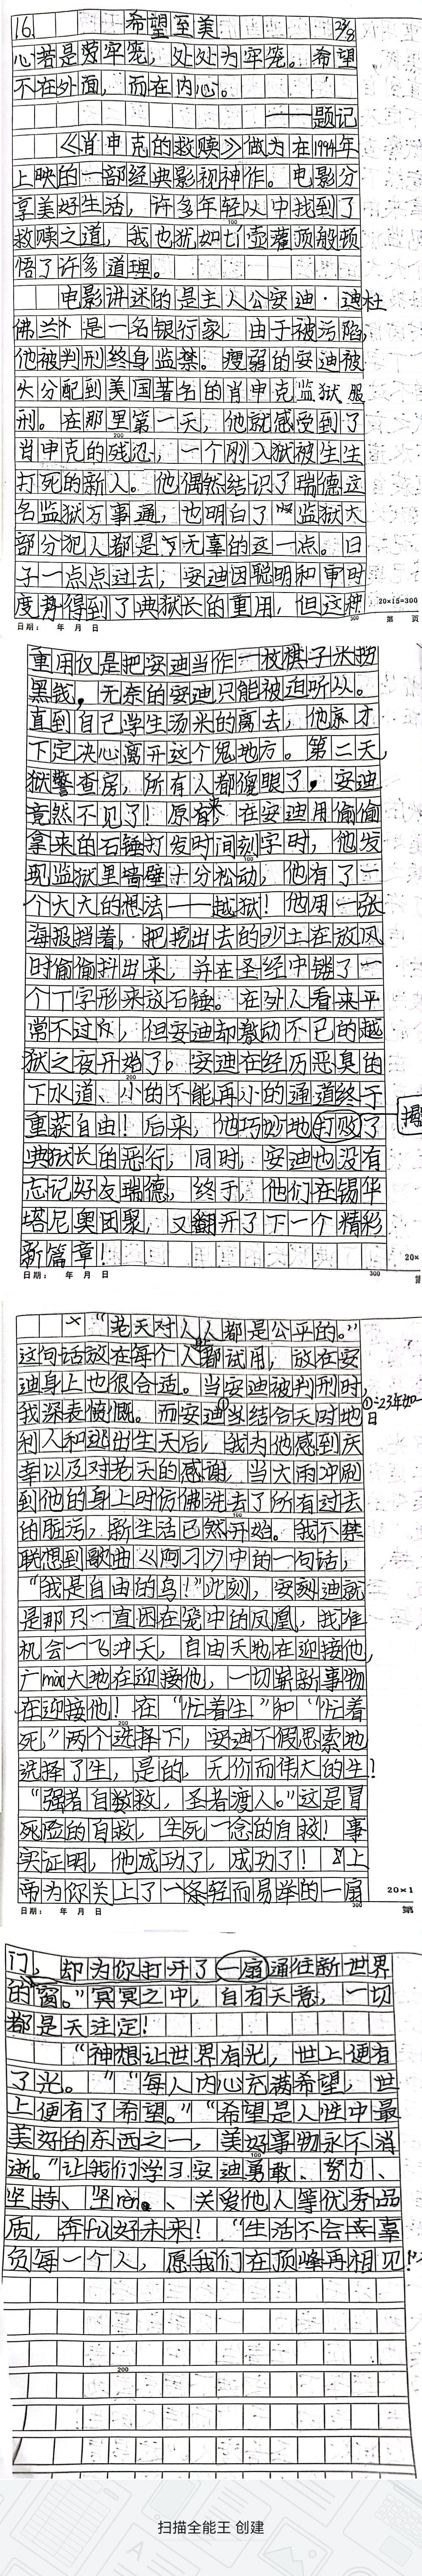 16. 希望至美 23/8
心若是牢笼，处处为牢笼。希望
不在外面，而在内心。
——题记
《肖申克的救赎》做为在1994年
上映的一部经典影视神作。电影分
享美好生活，许多年轻人中找到了
救赎之道，我也犹如醍醐灌顶般顿
悟了许多道理。
电影讲述的是主人公安迪·迪杜
佛兰外是一名银行家，由于被污陷，
他被判刑终身监禁。瘦弱的安迪被
分配到美国著名的肖申克监狱服
刑。在那里第一天，他就感受到了
肖申克的残忍，一个刚入狱被生生
打死的新人。他偶然结识了瑞德这
名监狱万事通，也明白了监狱大
部分犯人都是无辜的这一点。日
子一点点过去，安迪因聪明和审时
度势得到了典狱长的重用，但这种
20×15=300
日期： 年 月 日 300 第 页
重用仅是把安迪当作一枚棋子来捞
黑钱，无奈的安迪只能被迫听从。
直到自己学生汤米的离去，他亦才
下定决心离开这个鬼地方。第二天，
狱警查房，所有人都傻眼了，安迪
竟然不见了！原来在安迪用偷偷
拿来的石锤打发时间刻字时，他发
现监狱里墙壁十分松动，他有了一
个大大的想法——越狱！他用一张
海报挡着，把挖出去的沙土在放风
时偷偷抖出来，并在圣经中镂了一
个丁字形来放石锤。在外人看来平
常不过，但安迪却激动不已的越
狱之夜开始了。安迪在经历恶臭的
下水道、小的不能再小的通道终于
重获自由！后来，他巧妙地打败了
典狱长的恶行，同时，安迪也没有
忘记好友瑞德，终于，他们在锡华
塔尼奥团聚，又翻开了下一个精彩
新篇章！
日期： 年 月 日 300
“老天对人人都是公平的。”
这句话放在每个人都试用，放在安
迪身上也很合适。当安迪被判刑时，
我深表愤慨。而安迪①当结合天时地
①：23年如一日
利人和逃出生天后，我为他感到庆
幸以及对老天的感谢，当大雨冲刷
到他的身上时仿佛洗去了所有过去
的脏污，新生活已然开始。我不禁
联想到歌曲《阿刁》中的一句话，
“我是自由的鸟！”此刻，安刻迪就
是那只一直困在笼中的凤凰，找准
机会一飞冲天，自由天地在迎接他，
广mào大地在迎接他，一切崭新事物
在迎接他！在“忙着生”和“忙着
死”两个选择下，安迪不假思索地
选择了生，是的，无价而伟大的生！
“强者自救，圣者渡人。”这是冒
死险的自救，生死一念的自救！事
实证明，他成功了，成功了！上
帝为你关上了一条轻而易举的一扇
20×1
日期： 年 月 日 300 第
门，却为你打开了一扇通往新世界
的窗。”冥冥之中，自有天意，一切
都是天注定！
“神想让世界有光，世上便有
了光。”“每人内心充满希望，世
上便有了希望。”“希望是人性中最
美好的东西之一，美好事物永不消
逝。”让我们学习安迪勇敢、努力、
坚持、坚rèn、关爱他人等优秀品
质，奔fù好未来！“生活不会辜
负每一个人，愿我们在顶峰再相见！”
200
扫描全能王 创建